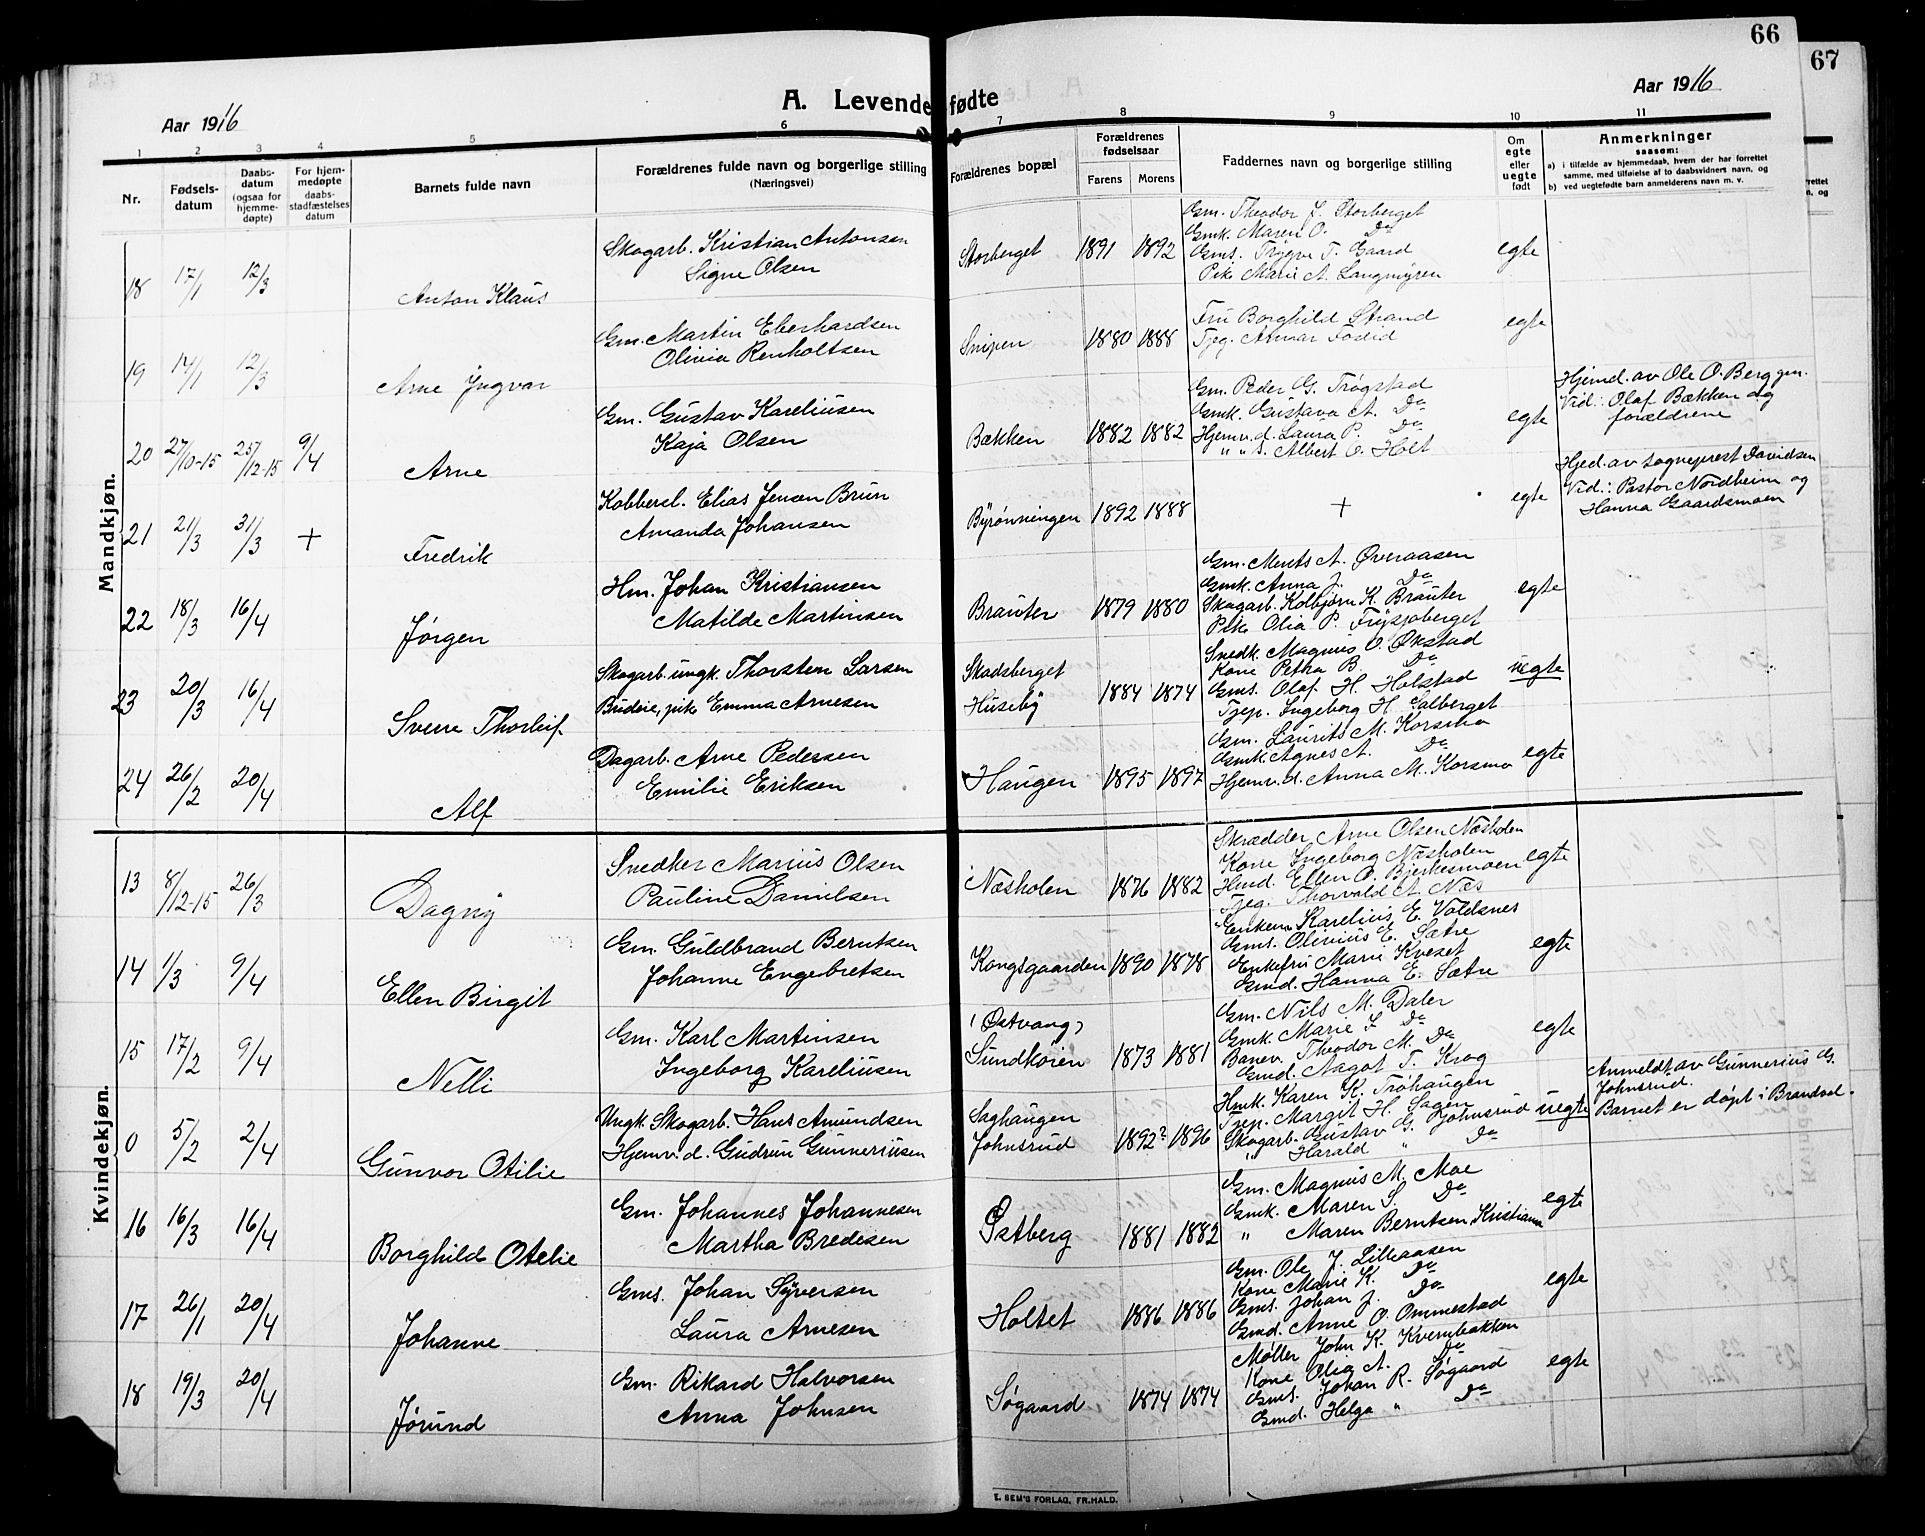 66
67
A. Levendefødte
Aar 1916
Aar 1916
1 2 3 4 5 6 7 8 9 10 11
Nr.
Fødsels-
datum
Daabs-
datum
(ogsaa for
hjemme-
døpte)
For hjem-
medøpte
daabs-
stadfæstelses
datum
Barnets fulde navn
Forældrenes fulde navn og borgerlige stilling
(Næringsvei)
Forældrenes bopæl
Forældrenes
fødselsaar
Farens Morens
Faddernes navn og borgerlige stilling
Om
egte
eller
uegte
født
Anmerkninger
saasom:
a) i tilfælde av hjemmedaab, hvem der har forrettet
samme, med tilføielse af to daabsvidners navn, og
b) ved uegtefødte barn anmelderens navn m. v.
Mandkjøn.
18 17/1 12/3 Anton Klaus
Skogarb. Kristian Antonsen
Signe Olsen
Storberget 1891 1892
Gm. Theodor J. Storberget
Gmk. Maren O. Do
Gms. Trygve T. Gaard
Pike Marie A. Langmyren
egte
19 14/1 12/3 Arne Ingvar
Gm. Martin Eberhardsen
Olivia Renholtsen
Snipen 1880 1888
Fru Borghild Strand
Tjeg. Annar Fodid
egte
20 27/10-15 25/12-15 9/4 Arne
Gm. Gustav Kareliusen
Kaja Olsen
Bækken 1882 1882
Gm. Peder G. Trøgstad
Gmk. Gustava A. Do
Hjemv.d. Laura P. Do
" " s. Albert O. Holt
egte
Hjemd. av Ole O. Berg gm.
Vid.: Olaf Bækken og
forældrene
21 21/3 31/3 + Fredrik
Kobbersl. Elias Jensen Brun
Amanda Johansen
Byrønningen 1892 1888
+
egte
Hjed. av sogneprest Davidsen
Vid.: Pastor Nordheim og
Hanna Gaardsmoen
22 18/3 16/4 Jørgen
Hm. Johan Kristiansen
Matilde Martinsen
Brauter 1879 1880
Gm. Ments A. Øveraasen
Gmk. Anna J. Do
Skogarb. Kolbjørn K. Brauter
Pike Olia P. Frysjøberget
egte
23 20/3 16/4 Sverre Thorleif
Skogarb. ungk. Thorsten Larsen
Budeie, pike Emma Arnesen
Skadsberget
Huseby
1884 1874
Snedk. Magnus O. Økstad
Kone Petha B. Do
Gms. Olaf H. Holstad
Tjep. Ingeborg H. Salberget
uegte
24 26/2 20/4 Alf
Dagarb. Arne Pedersen
Emilie Eriksen
Haugen 1895 1897
Gm. Laurits M. Korsmo
Gmk. Agnes A. Do
Hjemv.d. Anna M. Korsmo
egte
Kvindekjøn.
13 8/12-15 26/3 Dagny
Snedker Marius Olsen
Pauline Danielsen
Næsholen 1876 1882
Skrædder Arne Olsen Næsholen
Kone Ingeborg Næsholen
Hmd. Ellen O. Bjerkesmoen
Tjeg. Thorvald A. Næs
egte
14 1/3 9/4 Ellen Birgit
Gm. Guldbrand Berntsen
Johanne Engebretsen
Kongsgaarden 1890 1878
Enkem. Karelius E. Voldsnes
Gms. Olivius E. Sætre
Enkefru Marie Kveset
Gmd. Hanna E. Sætre
egte
15 17/2 9/4 Nelli
Gm. Karl Martinsen
Ingeborg Kareliusen
(Østvang)
Sundkoien 1873 1881
Gm. Nils M. Daler
Gmk. Marie L. Do
Banev. Theodor M. Do
Gmd. Nagot T. Krog
egte
0 5/2 2/4 Gunvor Otilie
Ungk. Skogarb. Hans Amundsen
Hjemv.d. Gudrun Gunneriusen
Saghaugen
Johnsrud
1892? 1896
Hmk. Karen K. Trøhaugen
Tjep. Margit H. Sagen
Skogarb. Gustav G. Johnsrud
" Harald " Do
uegte
Anmeldt av Gunnerius G.
Johnsrud.
Barnet er døpt i Brandval.
16 16/3 16/4 Borghild Otelie
Gm. Johannes Johannesen
Martha Bredesen
Østberg 1881 1882
Gm. Magnus M. Moe
Gmk. Maren S. Do
" Maren Berntsen, Kristiania
egte
17 26/1 20/4 Johanne
Gms. Johan Syversen
Laura Arnesen
Holtet 1886 1886
Gm. Ole J. Lilleaasen
Kone Marie K. Do
Gms. Johan J. Do
Gmd. Anne O. Ommestad
egte
18 19/3 20/4 Jørund
Gm. Rikard Halvorsen
Anna Johnsen
Søgaard 1874 1874
Møller John K. Kvernbakken
Kone Olia A. Do
Gms. Johan R. Søgaard
Gmd. Helga " Do
egte
E. SEM'S FORLAG, FR.HALD.